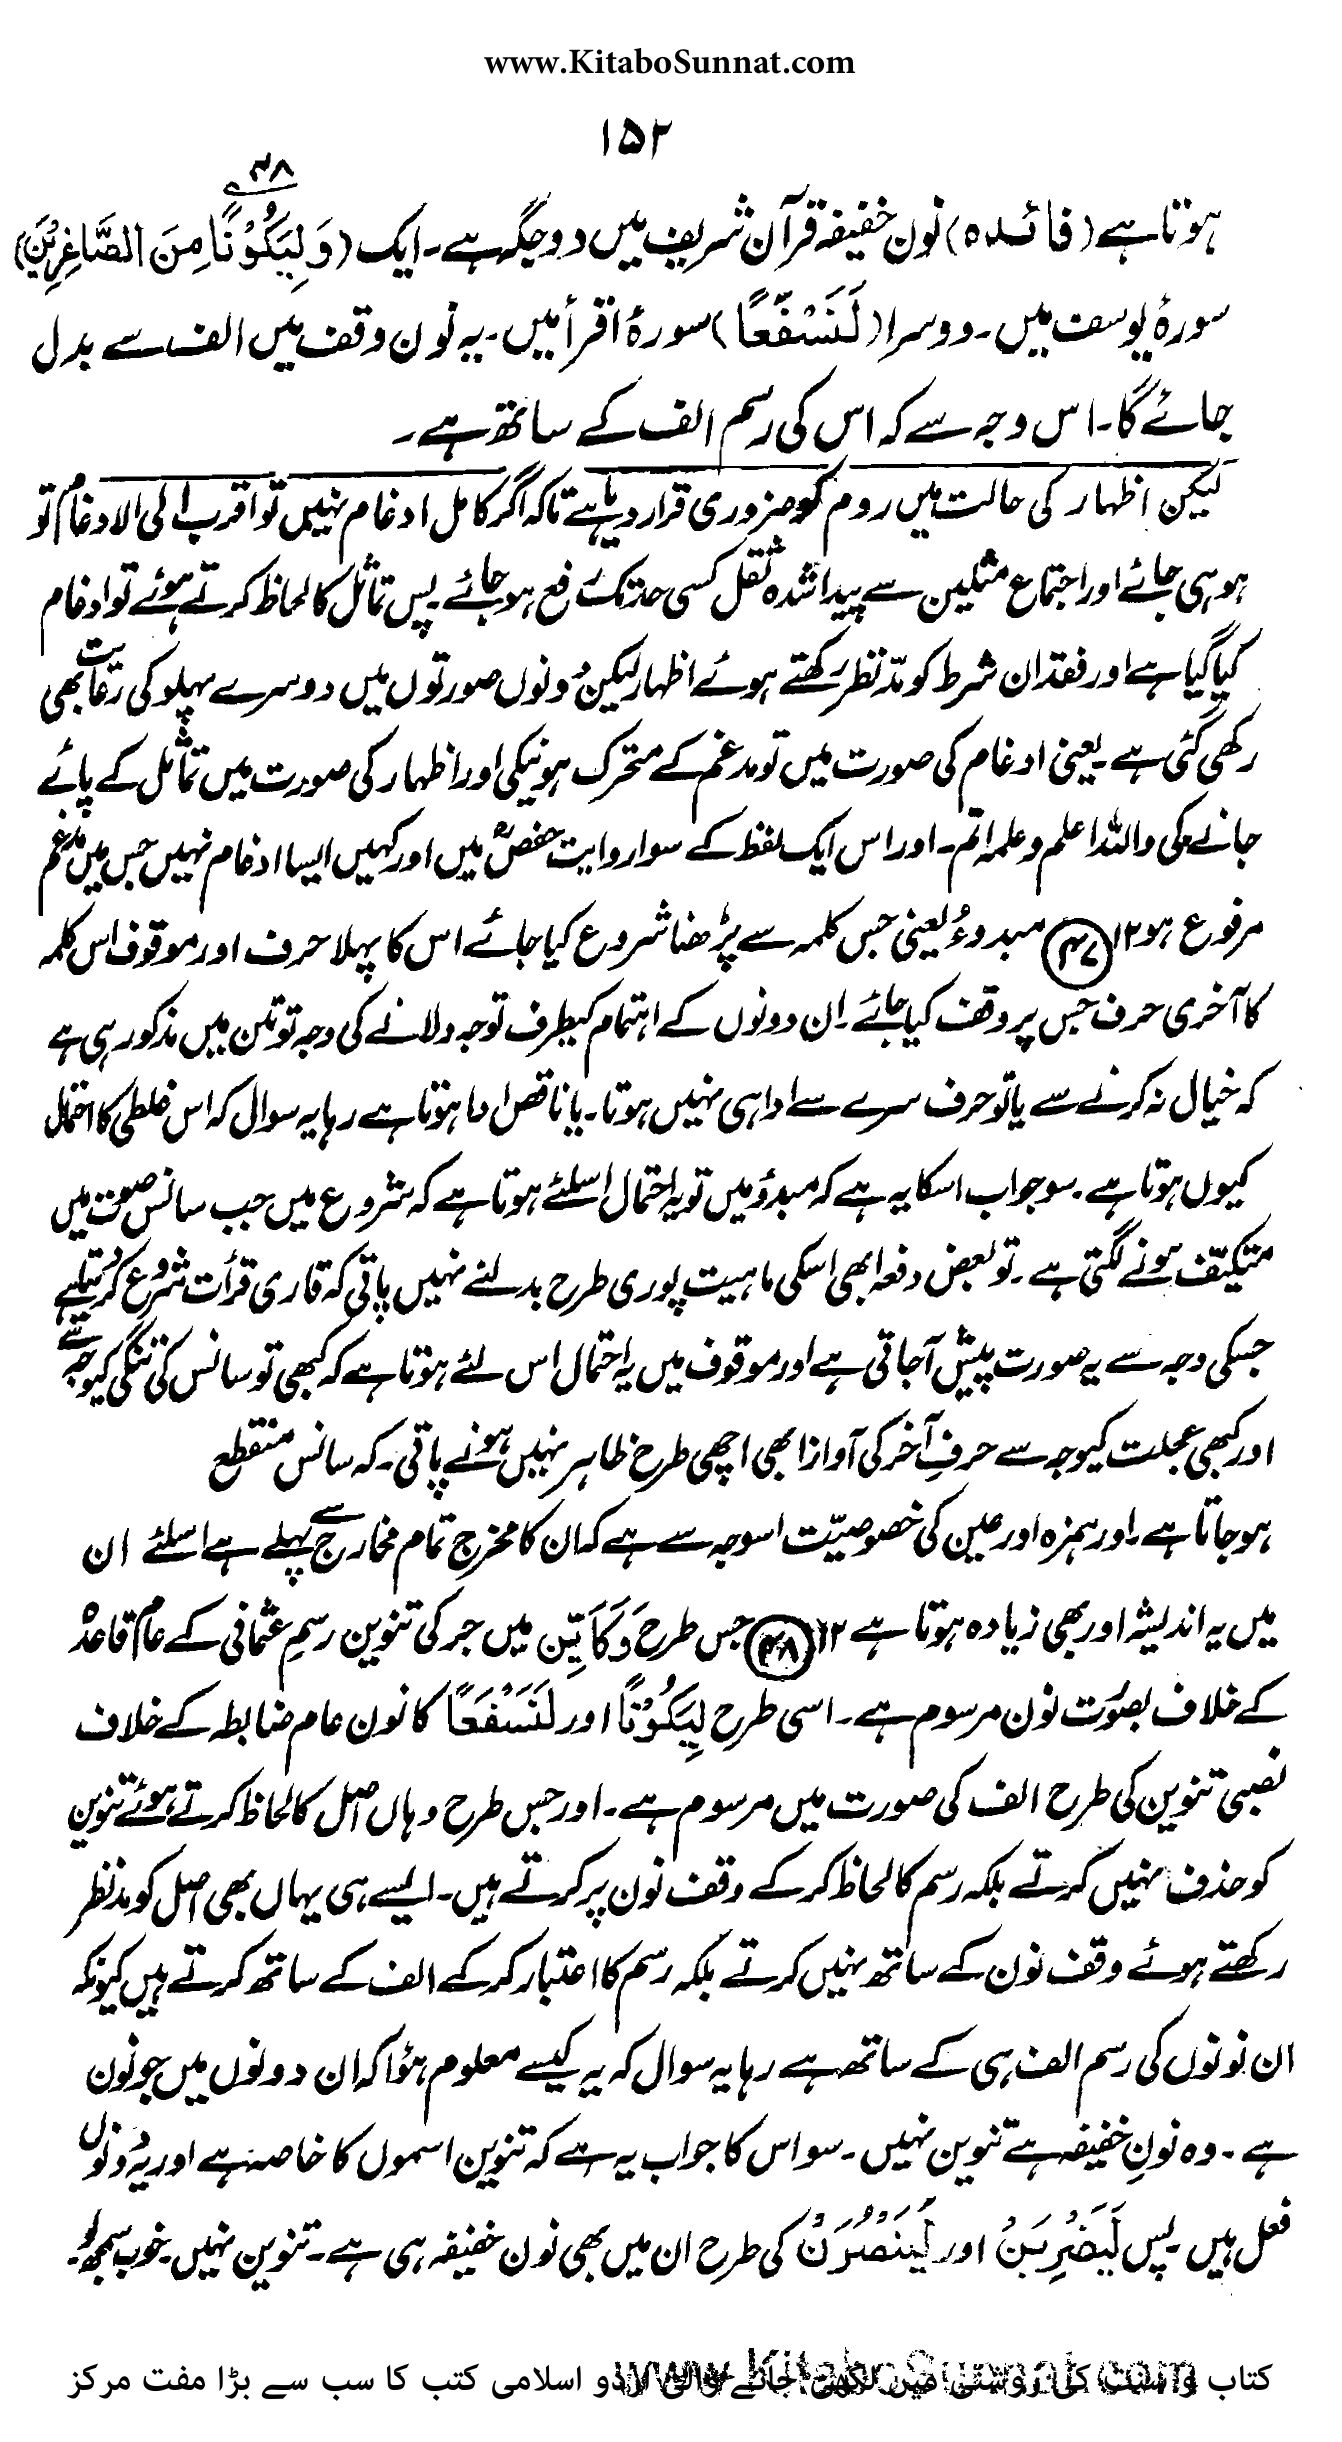 www.KitaboSunnat.com
۱۵۲
۴۸
ہوتا ہے (فائدہ) نون خفیفہ قرآن شریف میں دو جگہ ہے۔ ایک (وَلِيَكُوْنًا مِنَ الصَّاغِرِيْنَ)
سورۂ یوسف میں۔ دوسرا (لَنَسْفَعًا) سورۂ اقرأ میں۔ یہ نون وقف میں الف سے بدل
جائے گا۔ اس وجہ سے کہ اس کی رسم الف کے ساتھ ہے۔
لیکن اظہار کی حالت میں روم کو ضروری قرار دیا ہے تاکہ اگر کامل ادغام نہیں تو اقرب الی الادغام تو
ہو ہی جائے اور اجتماع مثلین سے پیدا شدہ ثقل کسی حد تک رفع ہو جائے پس تماثل کا لحاظ کرتے ہوئے تو ادغام
کیا گیا ہے اور فقدان شرط کو مدّ نظر رکھتے ہوئے اظہار لیکن دونوں صورتوں میں دوسرے پہلو کی رعایت بھی
رکھی گئی ہے۔ یعنی ادغام کی صورت میں تو مدغم کے متحرک ہونیکی اور اظہار کی صورت میں تماثل کے پائے
جانے کی واللہ اعلم و علمہ اتم۔ اور اس ایک لفظ کے سوا روایت حفصؒ میں اور کہیں ایسا ادغام نہیں جس میں مدغم
مرفوع ہو ۱۲ ۴۷ مبدوءُ یعنی جس کلمہ سے پڑھنا شروع کیا جائے اس کا پہلا حرف اور موقوف اس کلمہ
کا آخری حرف جس پر وقف کیا جائے۔ ان دونوں کے اہتمام کیطرف توجہ دلانے کی وجہ تو متن میں مذکور ہی ہے
کہ خیال نہ کرنے سے یا تو حرف سرے سے ادا ہی نہیں ہوتا۔ یا ناقص ادا ہوتا ہے رہا یہ سوال کہ اس غلطی کا احتمال
کیوں ہوتا ہے۔ سو جواب اسکا یہ ہے کہ مبدوُ میں تو یہ احتمال اسلئے ہوتا ہے کہ شروع میں جب سانس صوت میں
متکیّف ہونے لگتی ہے۔ تو بعض دفعہ ابھی اسکی ماہیت پوری طرح بدلنے نہیں پاتی کہ قاری قرأت شروع کر دیتا ہے
جسکی وجہ سے یہ صورت پیش آجاتی ہے اور موقوف میں یہ احتمال اس لئے ہوتا ہے کہ کبھی تو سانس کی تنگی کیوجہ سے
اور کبھی عجلت کیوجہ سے حرفِ آخر کی آواز ابھی اچھی طرح ظاہر نہیں ہونے پاتی۔ کہ سانس منقطع
ہو جاتا ہے۔ اور ہمزہ اور عین کی خصوصیّت اسوجہ سے ہے کہ ان کا مخرج تمام مخارج سے پہلے ہے اسلئے ان
میں یہ اندیشہ اور بھی زیادہ ہوتا ہے ۱۲ ۴۸ جس طرح وَكَاَيِّن میں جر کی تنوین رسمِ عثمانی کے عام قاعدہ
کے خلاف بصورت نون مرسوم ہے۔ اسی طرح لِيَكُوْنًا اور لَنَسْفَعًا کا نون عام ضابطہ کے خلاف
نصبی تنوین کی طرح الف کی صورت میں مرسوم ہے۔ اور جس طرح وہاں اصل کا لحاظ کرتے ہوئے تنوین
کو حذف نہیں کرتے بلکہ رسم کا لحاظ کر کے وقف نون پر کرتے ہیں۔ ایسے ہی یہاں بھی اصل کو مدنظر
رکھتے ہوئے وقف نون کے ساتھ نہیں کرتے بلکہ رسم کا اعتبار کر کے الف کے ساتھ کرتے ہیں کیونکہ
ان نونوں کی رسم الف ہی کے ساتھ ہے رہا یہ سوال کہ یہ کیسے معلوم ہؤا کہ ان دونوں میں جو نون
ہے۔ وہ نونِ خفیفہ ہے تنوین نہیں۔ سو اس کا جواب یہ ہے کہ تنوین اسموں کا خاصہ ہے اور یہ دونوں
فعل ہیں۔ پس لَيَضْرِبَنْ اور لَيَنْصُرَنْ کی طرح ان میں بھی نون خفیفہ ہی ہے۔ تنوین نہیں۔ خوب سمجھ لو۔
کتاب و سنت کی روشنی میں لکھی جانے والی اردو اسلامی کتب کا سب سے بڑا مفت مرکز
www.KitaboSunnat.com